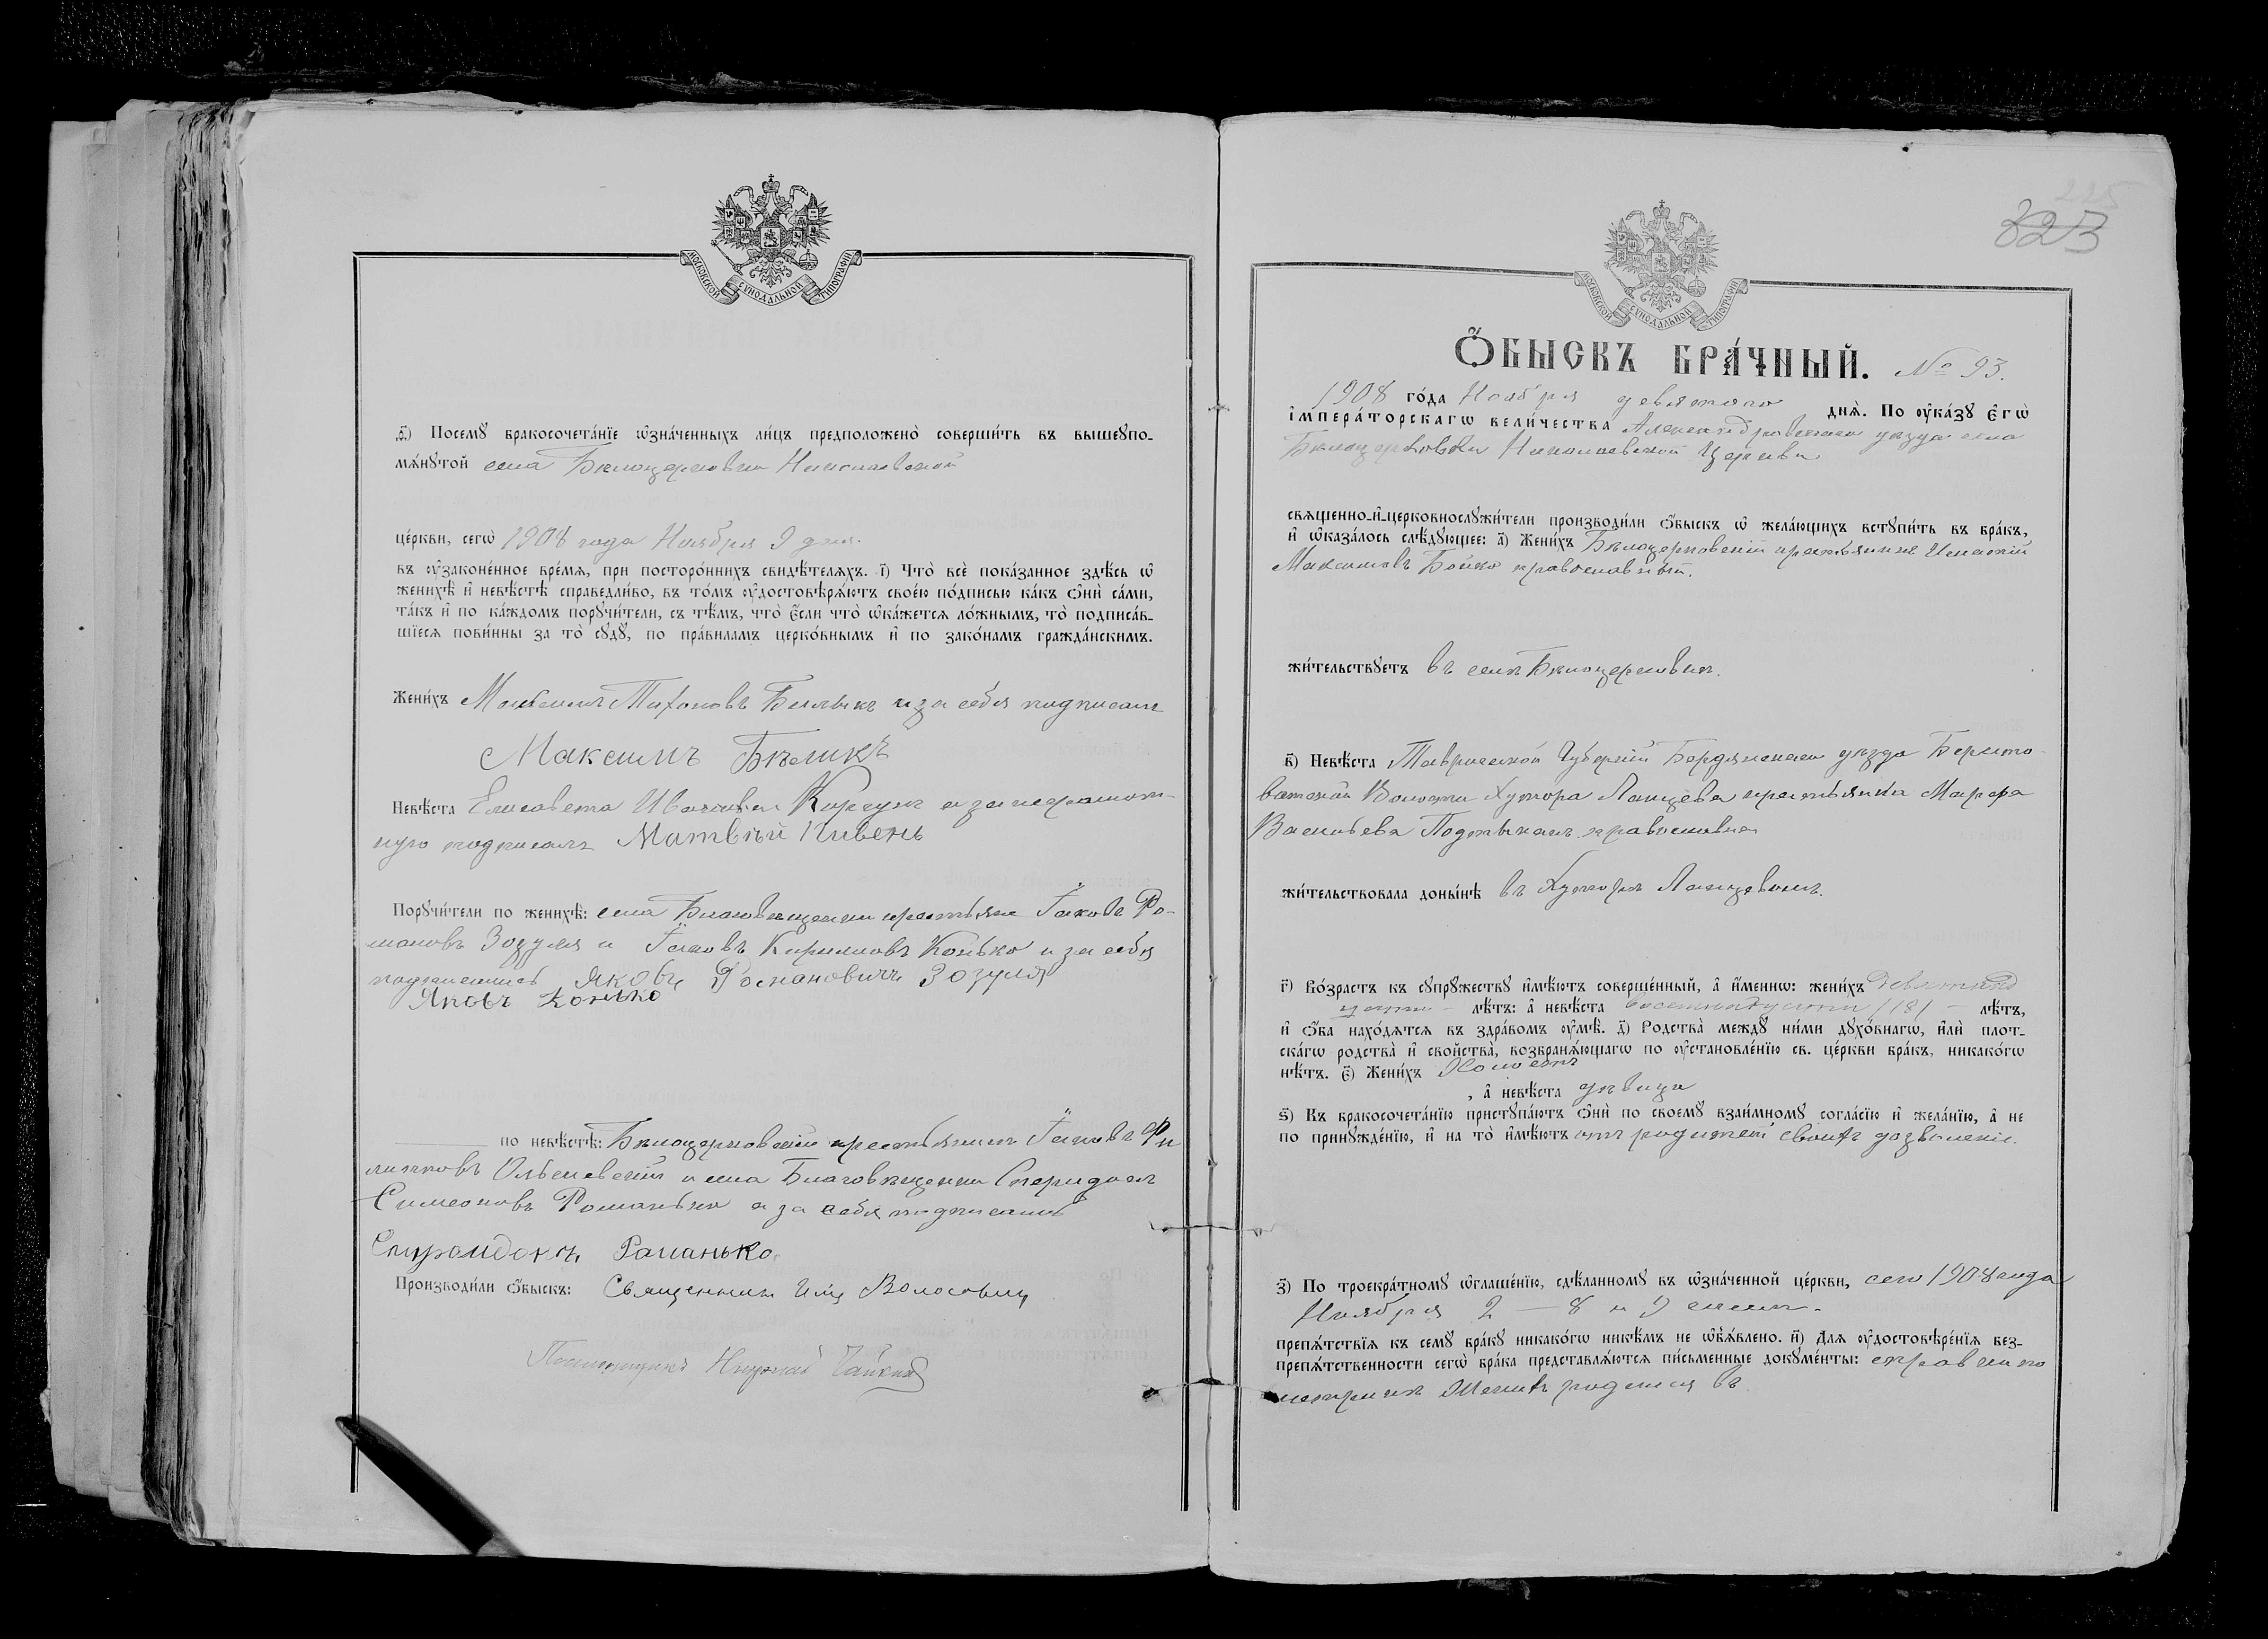 МОСКОВСКОЙ СѴНОДАЛЬНОЙ ТИПОГРАФІИ
д҃) Посемꙋ̀ бракосочета́нїе ѡ҆зна́ченныхъ ли́цъ предположено̀ соверши́ть въ вышеꙋпо-
мѧ́нꙋтой села Бѣлоцерковки Николаевской
це́ркви, сегѡ̀ 1908 года Ноября 9 дня.
въ ᲂу҆законе́нное вре́мѧ, при посторо́ннихъ свидѣ́телѧхъ. і҃) Что̀ всѐ пока́занное здѣ́сь ѡ҆
женихѣ̀ и҆ невѣ́стѣ справедли́во, въ то́мъ ᲂу҆достовѣрѧ́ютъ свое́ю по́дписью ка́къ ѻ҆нѝ са́ми,
та́къ и҆ по ка́ждомъ порꙋчи́тели, съ тѣ́мъ, что̀ є҆́сли что̀ ѡ҆ка́жетсѧ ло́жнымъ, то̀ подписа́в-
шїесѧ пови́нны за то̀ сꙋдꙋ̀, по пра́виламъ церко́внымъ и҆ по зако́намъ гражда́нскимъ.
Жени́хъ Максимъ Тихоновъ Билыкъ и за себя подписалъ
Максимъ Бѣликъ
Невѣ́ста Елисавета Иванова Коргунъ а за неграмот-
ную подписалъ Матвѣй Кивень
Порꙋчи́тели по женихѣ̀: села Благовѣщенки крестьяне Іаковъ Ро-
мановъ Зозуля и Іаковъ Кирилловъ Конько и за себя
подписались Яковъ Романовичъ Зозуля
Яковъ Конько
по невѣ́стѣ: Бѣлоцерковскій крестьянинъ Іаковъ Фи
липповъ Ольшевскій и села Благовѣщенки Спиридонъ
Симеоновъ Романько а за себя подписались
Спиридонъ Романько.
Производи́ли ѻ҆́быскъ: Священникъ Илія Волосович
Псаломщикъ Николай Чайкинъ
323
МОСКОВСКОЙ СѴНОДАЛЬНОЙ ТИПОГРАФІИ
Ѻ҆БЫСКЪ БРА́ЧНЫЙ. № 93.
1908 го́да Ноября девятого днѧ̀. По ᲂу҆ка́зꙋ Є҆гѡ̀
і҆мпера́торскагѡ вели́чества Александровскаго уѣзда села
Бѣлоцерковки Николаевской Церкви
свѧщенно-и҆-церковнослꙋжи́тели производи́ли ѻ҆́быскъ ѡ҆ жела́ющихъ встꙋпи́ть въ бра́къ,
и҆ ѡ҆каза́лось слѣ́дꙋющее: а҃) Жени́хъ Бѣлоцерковскій крестьянинъ Игнатій
Максимовъ Бойко православный.
жи́тельствꙋетъ въ селѣ Бѣлоцерковкѣ.
в҃) Невѣ́ста Таврической Губерніи Бердянскаго уѣзда Берито-
ватской Волости Хутора Ланцева крестьянка Марфа
Васильева православная
жи́тельствовала доны́нѣ въ Хуторѣ Ланцевомъ.
г҃) Во́зрастъ къ сꙋпрꙋ́жествꙋ и҆мѣ́ютъ соверше́нный, а҆ и҆́меннѡ: жени́хъ девятнад
цати лѣ́тъ: а҆ невѣ́ста восемнадцати /18/ лѣ́тъ,
и҆ ѻ҆́ба нахо́дѧтсѧ въ здра́вомъ ᲂу҆мѣ̀. д҃) Родства̀ междꙋ̀ ни́ми дꙋхо́внагѡ, и҆лѝ плот-
ска́гѡ родства̀ и҆ свойства̀, возбранѧ́ющагѡ по ᲂу҆становле́нїю св. це́ркви бра́къ, никако́гѡ
нѣ́тъ. є҃) Жени́хъ Холостъ
, а҆ невѣ́ста дѣвица
ѕ҃) Къ бракосочета́нїю пристꙋпа́ютъ ѻ҆нѝ по своемꙋ̀ взаи́мномꙋ согла́сїю и҆ жела́нїю, а҆ не
по принꙋжде́нїю, и҆ на то̀ и҆мѣ́ютъ отъ родителей своихъ дозволеніе.
з҃) По троекра́тномꙋ ѡ҆глаше́нїю, сдѣ́ланномꙋ въ ѡ҆зна́ченной це́ркви, сего 1908 года
Ноября 2 — 8 и 9 чиселъ.
препѧ́тствїѧ къ семꙋ̀ бра́кꙋ никако́гѡ никѣ́мъ не ѡ҆б̾ѧ́влено. и҃) Длѧ ᲂу҆достовѣре́нїѧ без-
препѧ́тственности сегѡ̀ бра́ка представлѧ́ютсѧ пи́сьменные докꙋме́нты: справка по
метрикѣ Женихъ родился въ